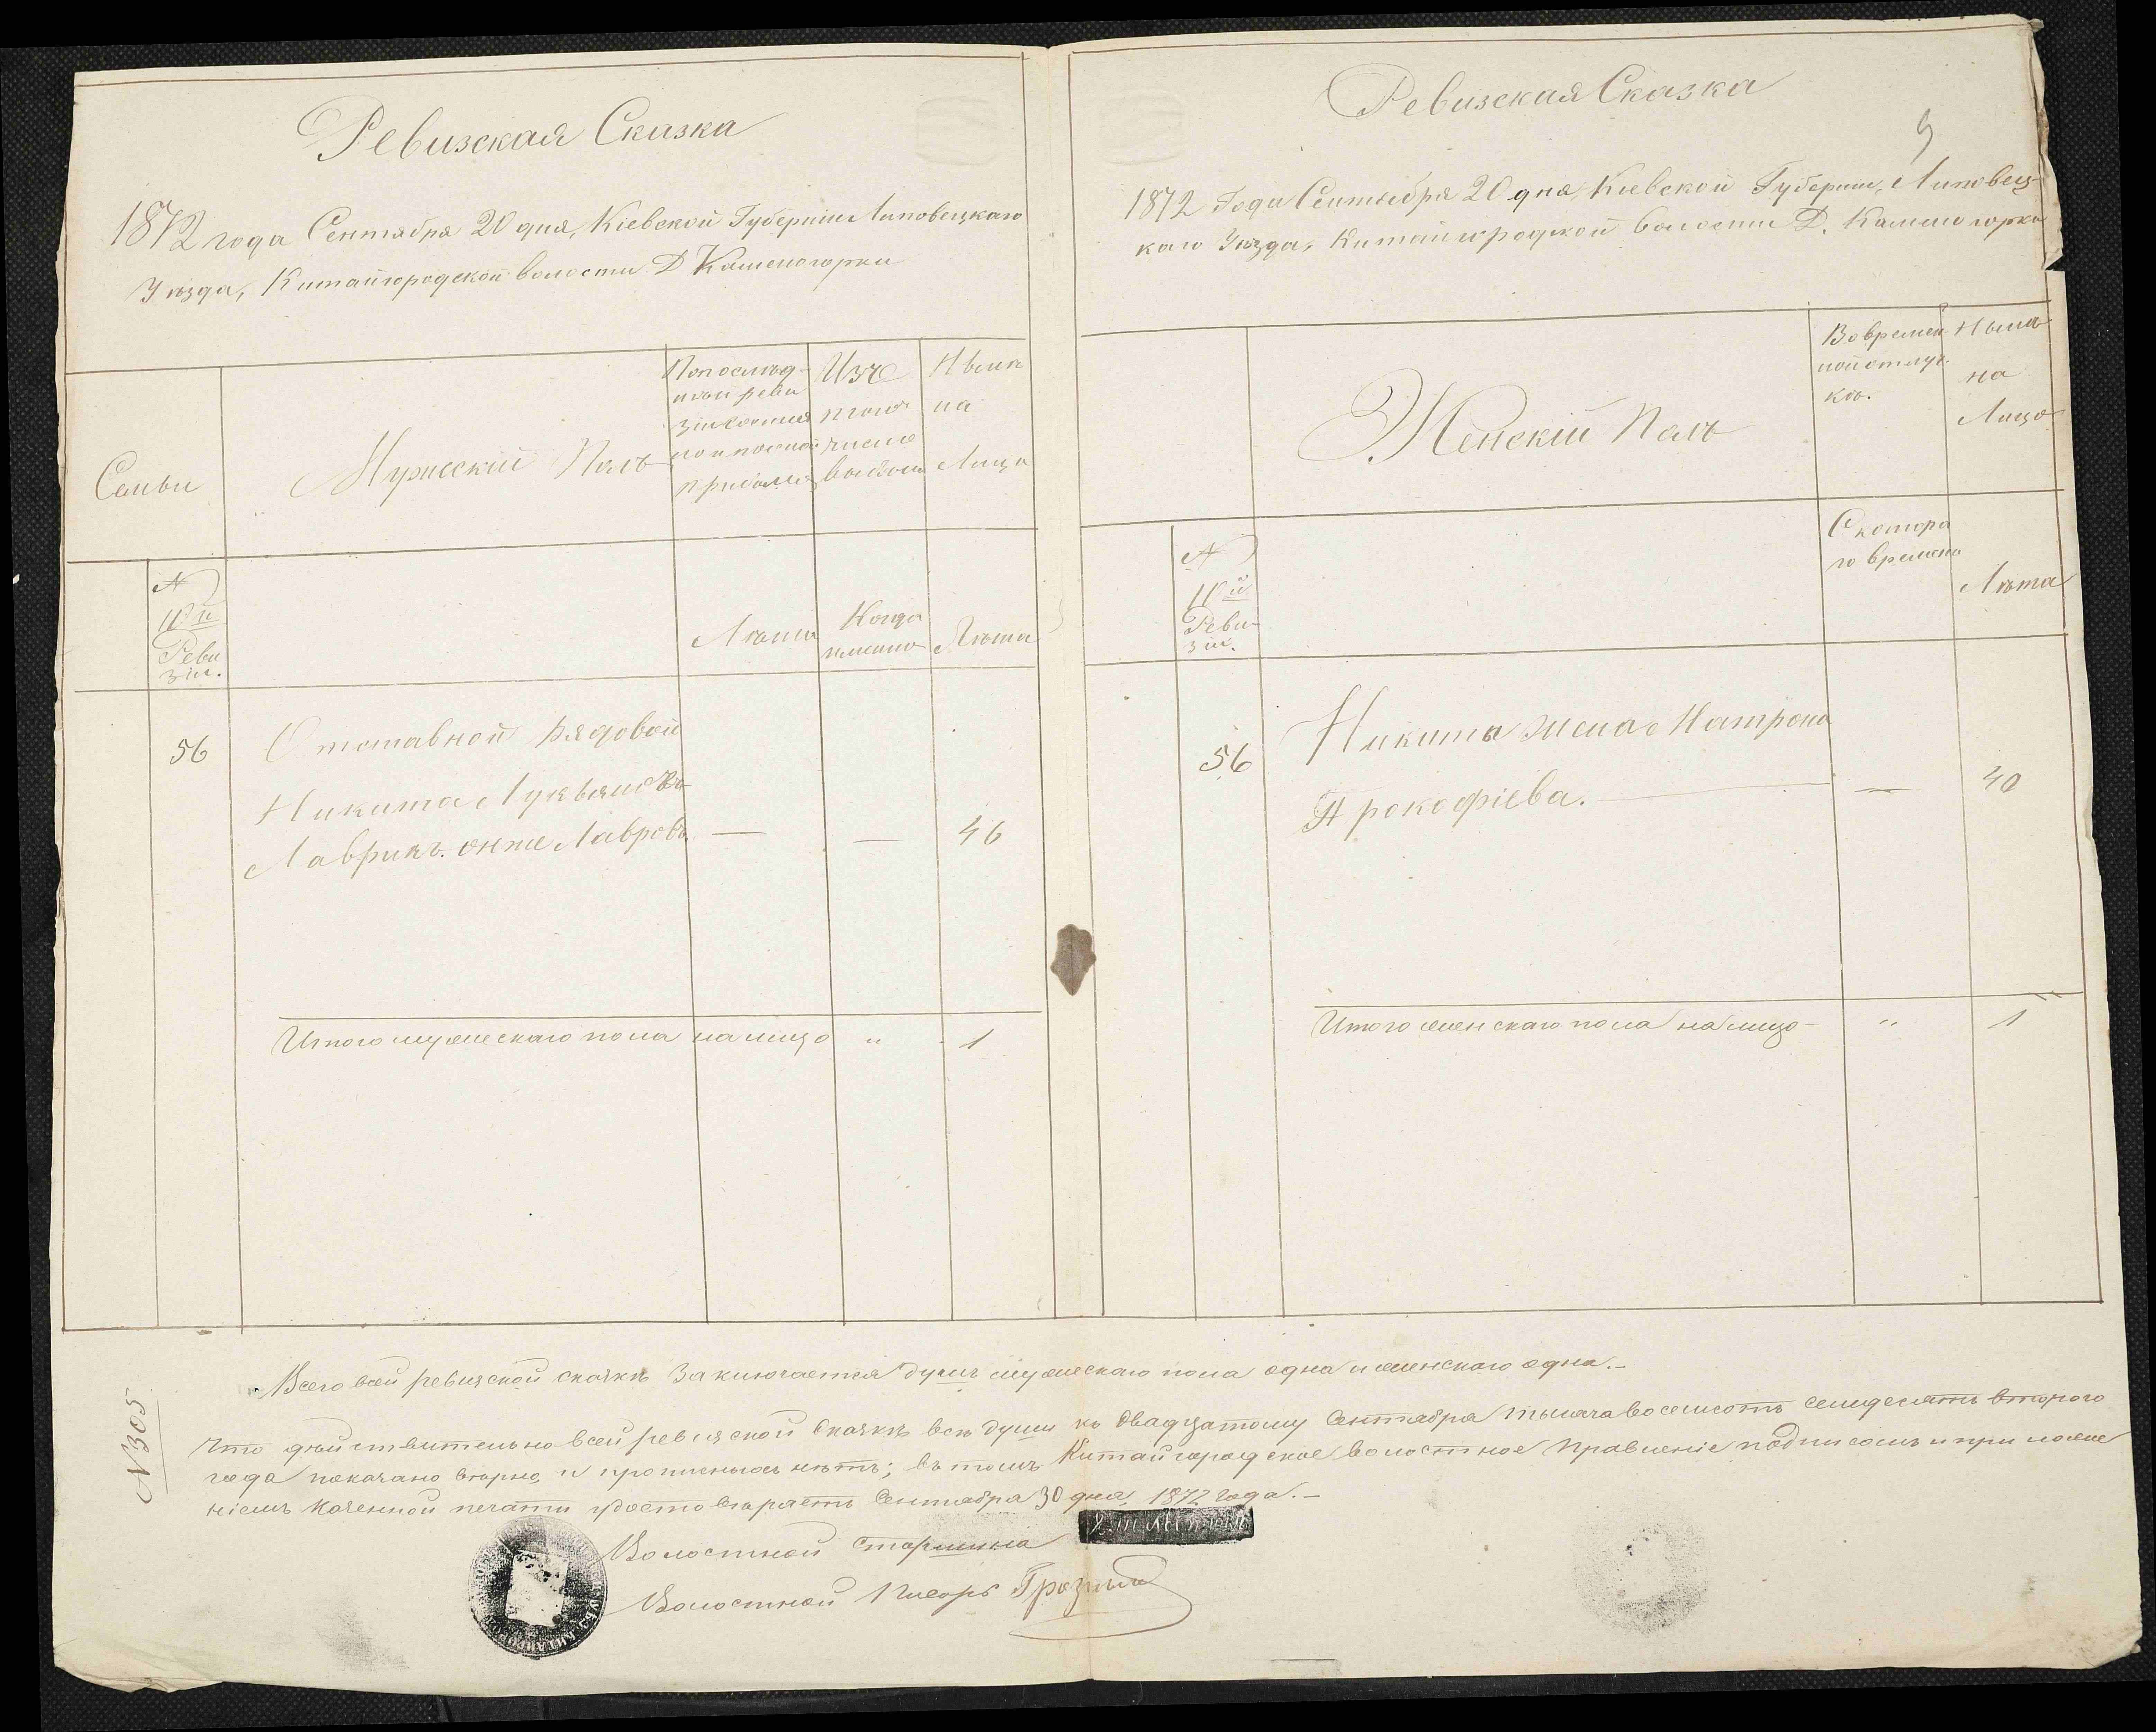 Ревизская Сказка
1872 года Сентября 20 дня, Кіевской Губерніи Липовецкаго
Уѣзда, Китайгородской волости Д Каменогорки
Семьи
Мужескій Полъ
По послѣд-
ней реви
зіи состоя
ло и послѣ
прибыло
Изъ
того
числа
выбыло
Ныне
на
Лицо
№
10й
Реви
зіи.
Лѣта
Когда
именно
Лѣта
56
Отставной рядовой
Никита Лукьяновъ
Лаврикъ. онже Лавровъ. — — 46
Итого мужескаго пола на лицо " 1
Ревизская Сказка
9
1872 Года Сентября 20 дня, Кіевской Губерніи, Липовец-
каго Уѣзда, Китайгородской волости Д. Каменогорки
Женскій Полъ
Во времен
ной отлуч-
кѣ.
Ныне
на
Лицо
№
10й
Реви-
зіи.
С котора
го времени
Лѣта
56
Никиты жена Матрона
Прокофіева. — — 40
Итого женскаго пола на лицо — " 1
Всего в сей ревизской сказкѣ заключается душъ мужескаго пола одна и женскаго одна.—
№305
Что дѣйствительно в сей ревизской сказкѣ всѣ души къ двадцатому Сентября тысяча восемсотъ семдесятъ втораго
года показано вѣрно, и прописныхъ нѣтъ; въ томъ Китайгородское волостное правленіе подписомъ и при ложе
ніемъ казенной печати удостовѣряетъ Сентября 30 дня, 1872 года.—
Волостной Старшина
Волостной Писарь Грозный